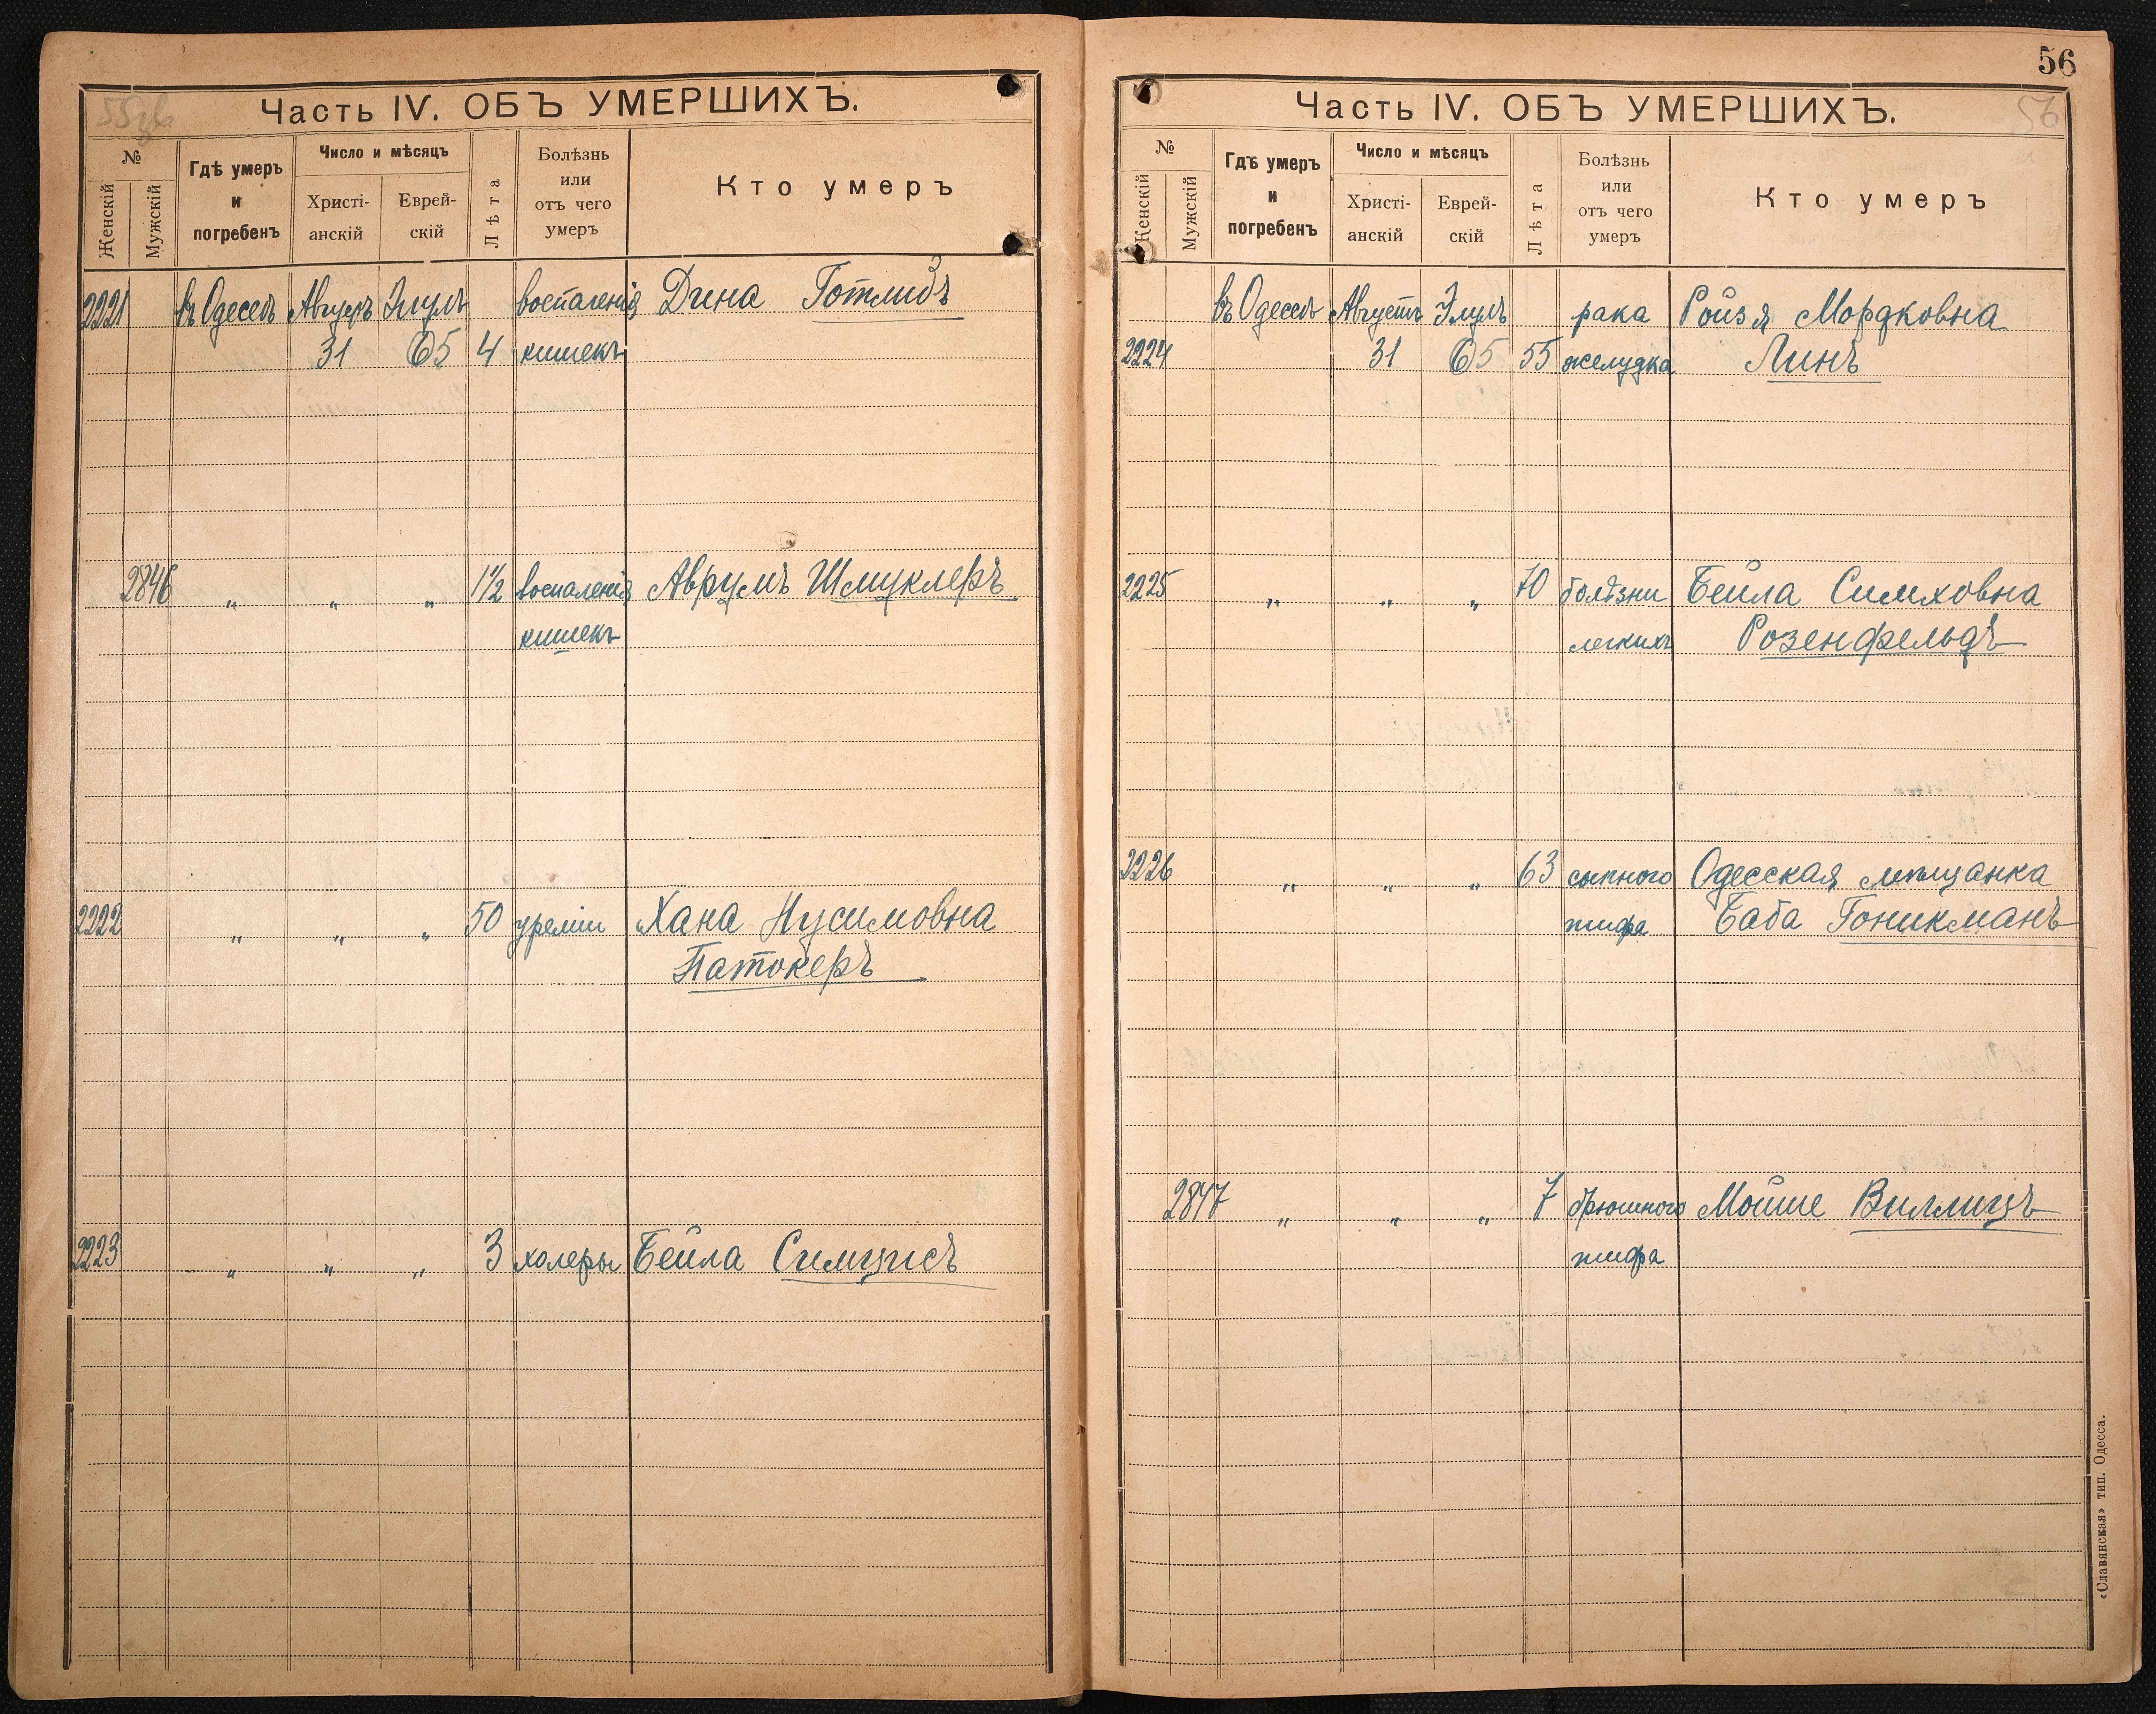 55об
Часть IV. ОБЪ УМЕРШИХЪ.
№
Женскій
Мужскій
Гдѣ умеръ
и
погребенъ
Число и мѣсяцъ
Христі-
анскій
Еврей-
скій
Лѣта
Болѣзнь
или
отъ чего
умеръ
Кто умеръ
2221 въ Одессѣ Августъ Элулъ воспаленія Дина Готлибъ
31 5 4 кишекъ
2846 „ „ „ 1½ воспаленія Аврумъ Шмуклеръ
кишекъ
2222 „ „ „ 50 уреміи Хана Нусимовна
Патокеръ
2223 „ „ „ 3 холеры Бейла Симцисъ
56
56
Часть IV. ОБЪ УМЕРШИХЪ.
№
Женскій
Мужскій
Гдѣ умеръ
и
погребенъ
Число и мѣсяцъ
Христі-
анскій
Еврей-
скій
Лѣта
Болѣзнь
или
отъ чего
умеръ
Кто умеръ
въ Одессѣ Августъ Элулъ рака Ройзя Мордковна
2224 31 5 55 желудка Линъ
2225 „ „ „ 70 болѣзни Бейла Симховна
легкихъ Розенфельдъ
2226 „ „ „ 63 сыпного Одесская мѣщанка
тифа Баба Гоникманъ
2847 „ „ „ 7 брюшного Мойше Виллицъ
тифа
«Славянская» тип. Одесса.